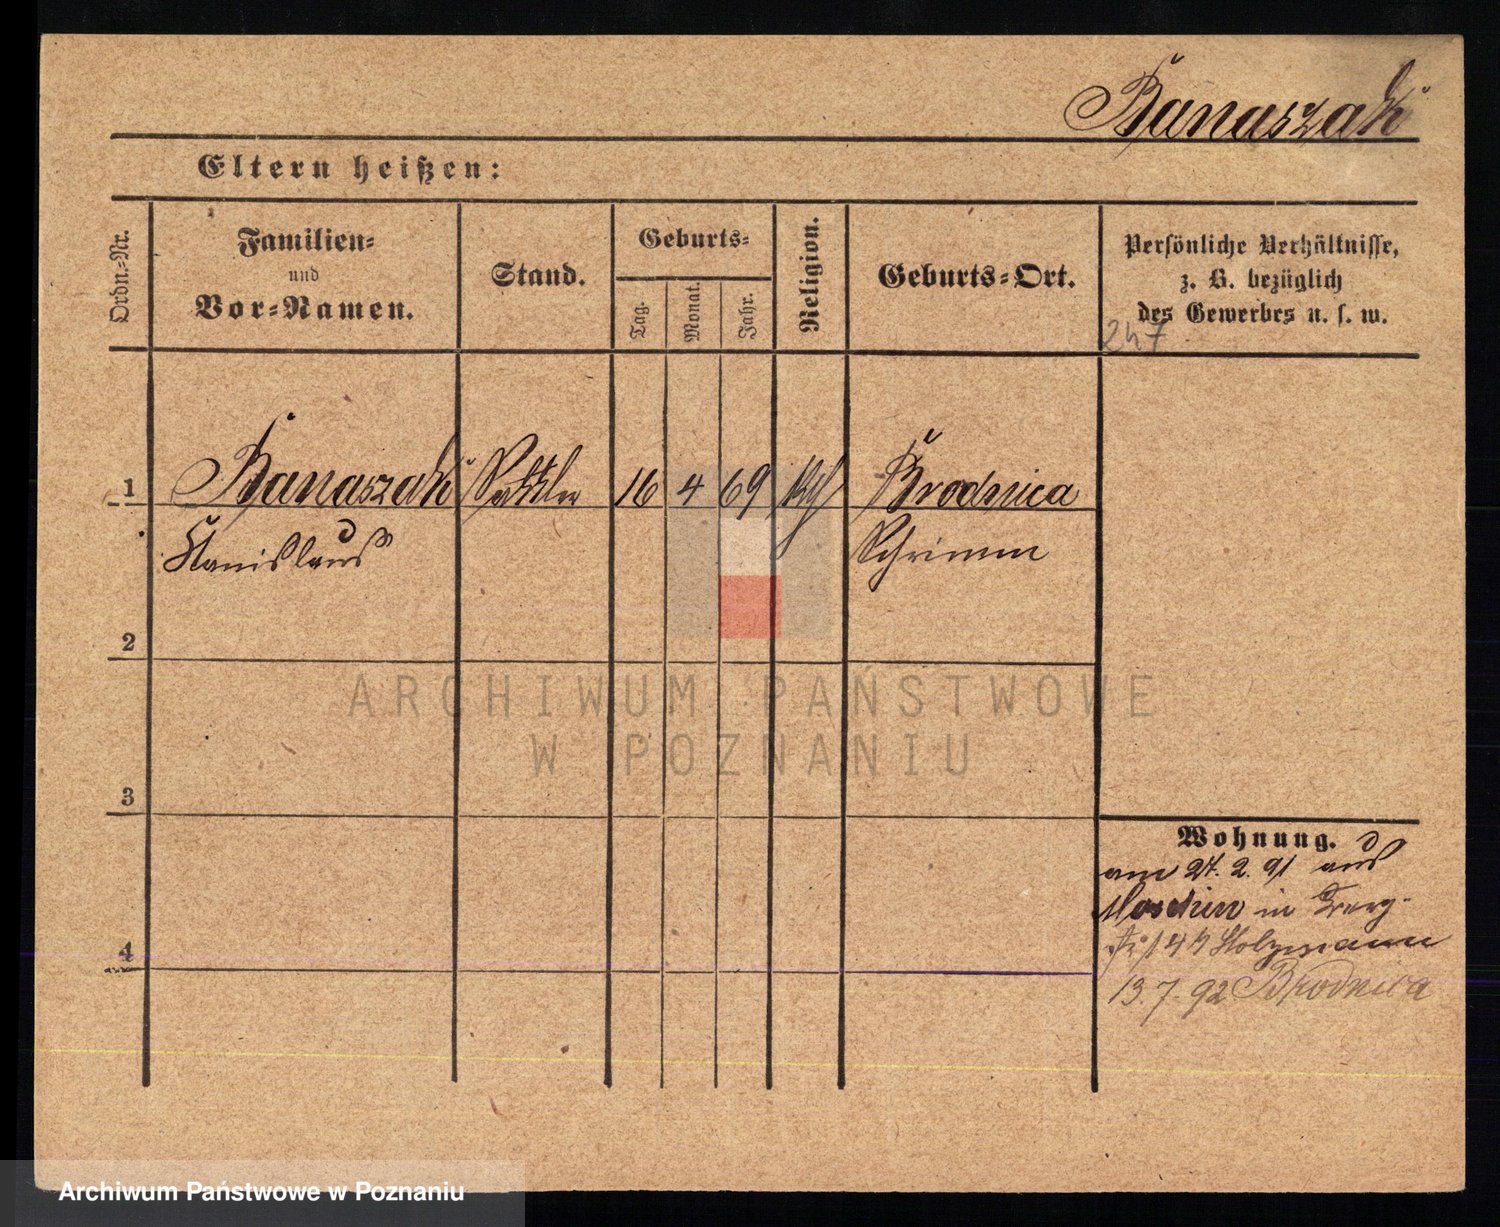 Banaszak
Eltern heißen:
Ordn.-Nr.
Familien-
und
Vor-Namen.
Stand.
Geburts-
Tag.
Monat.
Jahr.
Religion.
Geburts-Ort.
Persönliche Verhältnisse,
z. B. bezüglich
des Gewerbes u. s. w.
247
1 Banaszak Sattler 16 4 69 kth Brodnica
Stanislaus Schrimm
2
3
4
Wohnung.
am 27. 2. 91 aus
Moschin in Berg-
147 Holzmann
13. 7. 92 Brodnica
ARCHIWUM PAŃSTWOWE
W POZNANIU
Archiwum Państwowe w Poznaniu